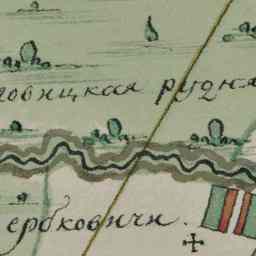 ловицкая рудня
ербковичи.